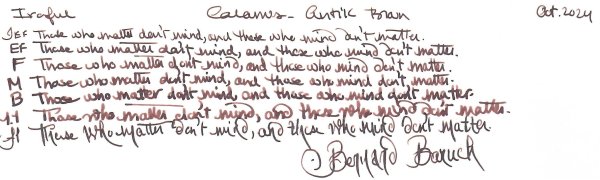 Iroful Calamus - Antik Bran Oct. 2024
IEF Those who matter don't mind, and those who mind don't matter.
EF Those who matter don't mind, and those who mind don't matter.
F Those who matter don't mind, and those who mind don't matter.
M Those who matter don't mind, and those who mind don't matter.
B Those who matter don't mind, and those who mind don't matter.
1.1 Those who matter don't mind, and those who mind don't matter.
Those who matter don't mind, and those who mind don't matter
Bernard Baruch